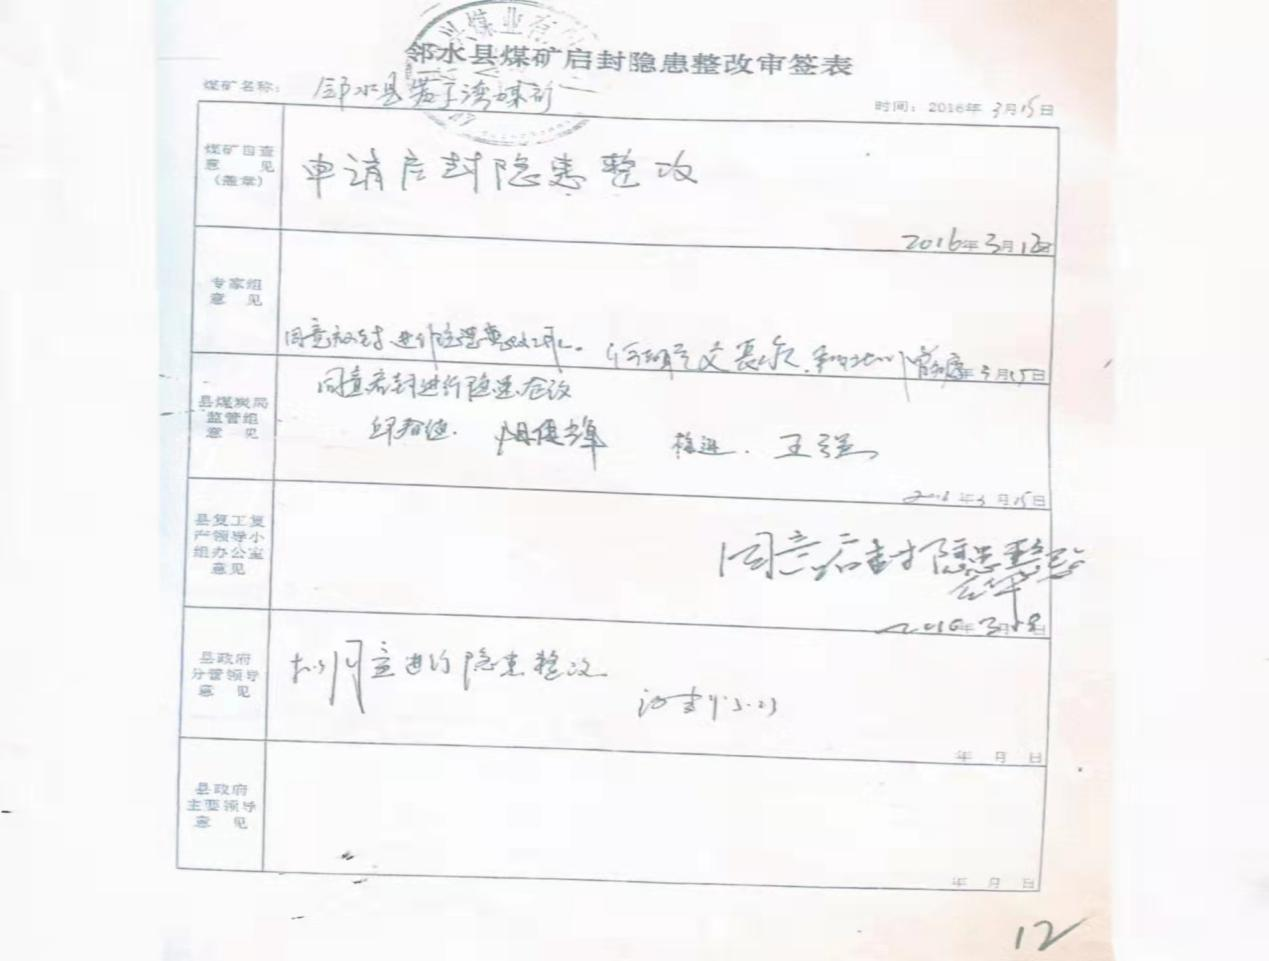 煤业有
邻水县煤矿启封隐患整改审签表
煤矿名称: 邻水县 湾煤矿
时间: 2016年 3月15日
煤矿自查
意 见
(盖章)
申请启封隐患整改
2016年3月12日
专家组
意 见
同意启封进行隐患整改工作。
年3月15日
县煤炭局
监管组
意 见
同意启封进行隐患整改
王强
2016年3月15日
县复工复
产领导小
组办公室
意见
同意启封隐患整改
2016年3月 日
县政府
分管领导
意 见
拟同意进行隐患整改
3.23
年 月 日
县政府
主要领导
意 见
年 月 日
12